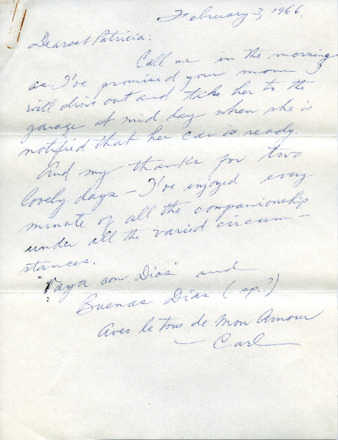 February 3, 1966.
Dearest Patricia:
Call me in the morning
as I've promised your mom I
will drive out and take her to the
garage at mid day when she is
notified that her car is ready.
And my thanks for two
lovely days - I've enjoyed every
minute of all the companionship
under all the varied circum-
stances.
"Vaya con Dios" and
Buenas Dias (sp.?)
Avec le tous de Mon Amour
- Carl